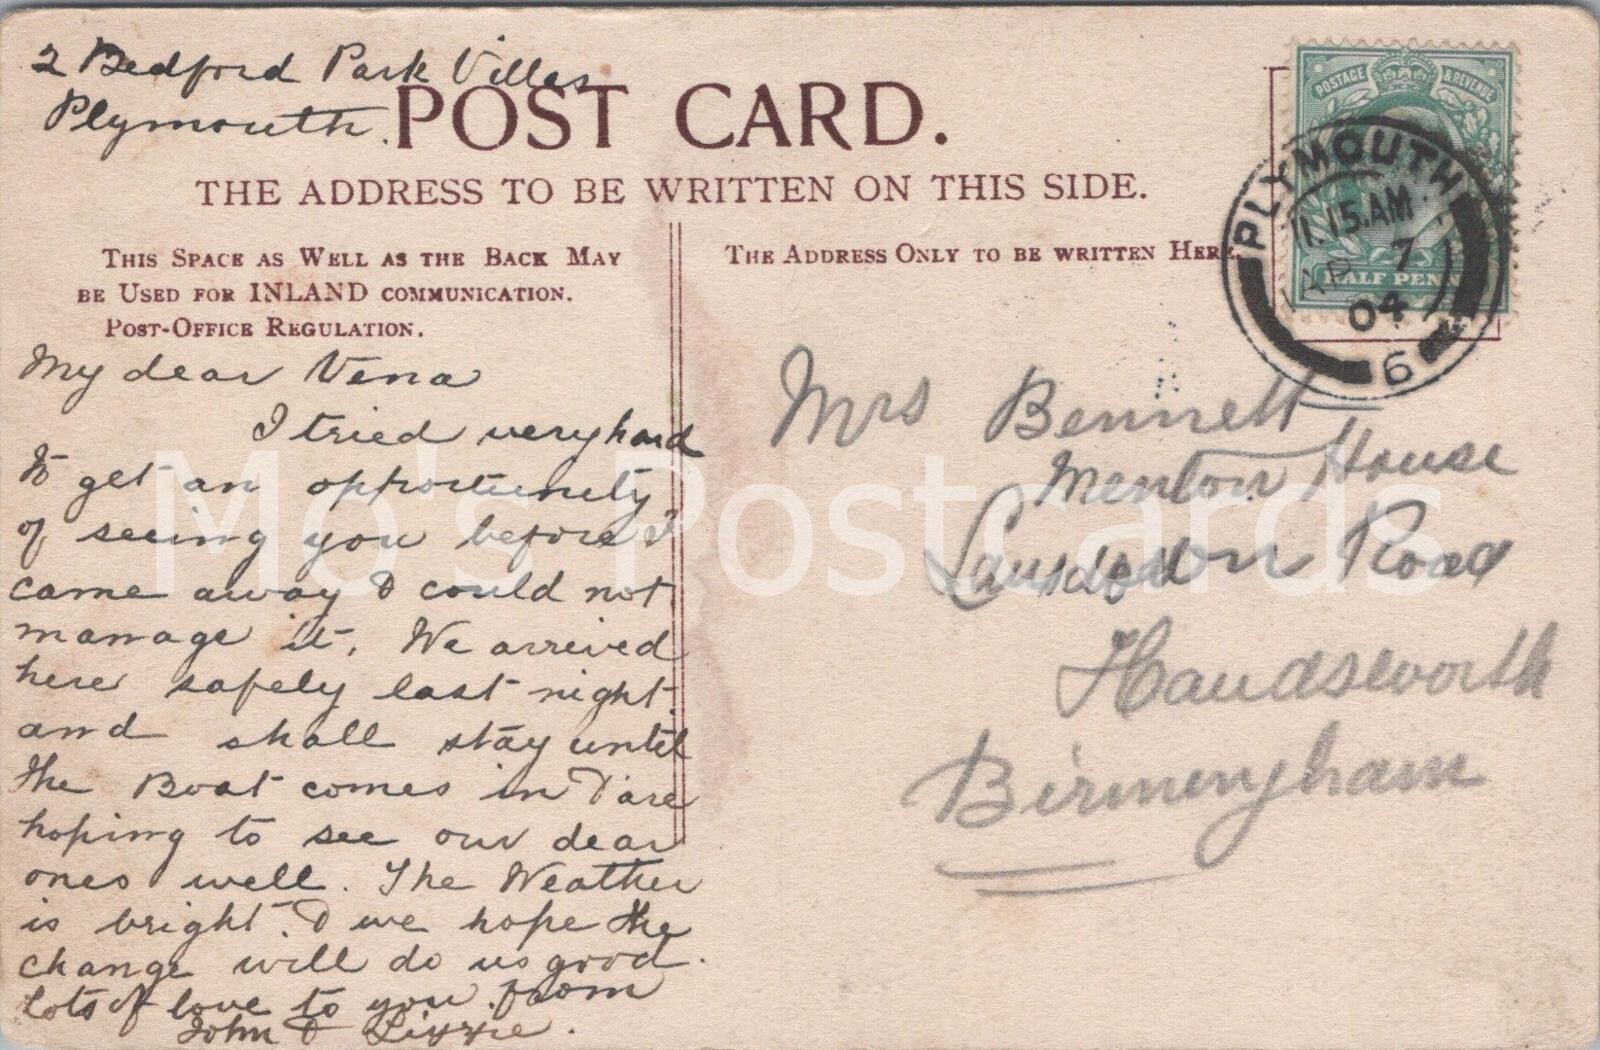 2 Bedford Park Villas
Plymouth.
POST CARD.
THE ADDRESS TO BE WRITTEN ON THIS SIDE.
THIS SPACE AS WELL AS THE BACK MAY
BE USED FOR INLAND COMMUNICATION.
POST-OFFICE REGULATION.
THE ADDRESS ONLY TO BE WRITTEN HERE.
POSTAGE & REVENUE
HALF PENNY
PLYMOUTH
11.15.AM
AP 7
04
6
My dear Vena
I tried very hard
to get an opportunity
of seeing you before I
came away & could not
manage it. We arrived
here safely last night.
and shall stay until
the Boat comes in & are
hoping to see our dear
ones well. The Weather
is bright. & we hope the
change will do us good.
lots of love to you from
John & Lizzie.
Mrs Bennett
Menton House
Lansdown Road
Handsworth
Birmingham
Mo's Postcards